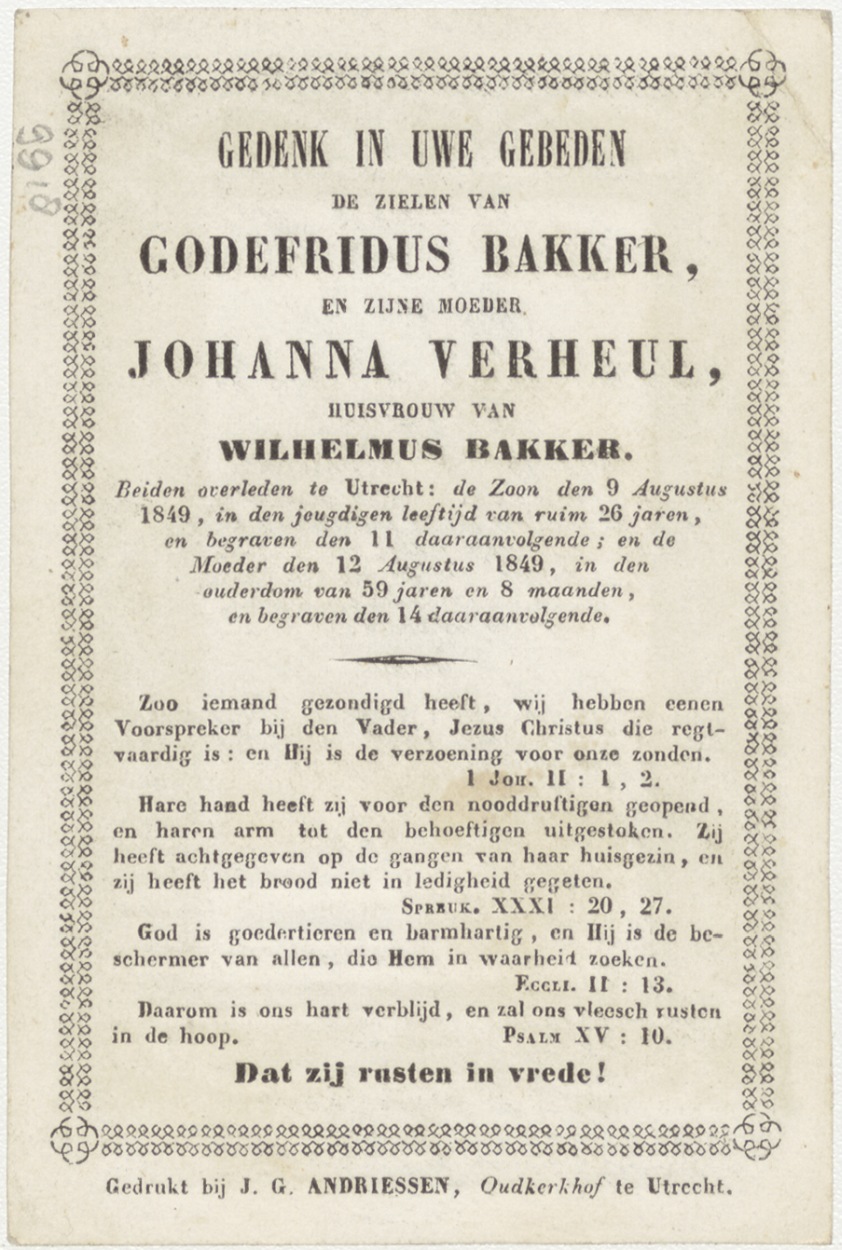 8166
GEDENK IN UWE GEBEDEN
DE ZIELEN VAN
GODEFRIDUS BAKKER,
EN ZIJNE MOEDER
JOHANNA VERHEUL,
HUISVROUW VAN
WILHELMUS BAKKER.
Beiden overleden te Utrecht: de Zoon den 9 Augustus
1849, in den jeugdigen leeftijd van ruim 26 jaren,
en begraven den 11 daaraanvolgende; en de
Moeder den 12 Augustus 1849, in den
ouderdom van 59 jaren en 8 maanden,
en begraven den 14 daaraanvolgende.
Zoo iemand gezondigd heeft, wij hebben eenen
Voorspreker bij den Vader, Jezus Christus die regt-
vaardig is: en Hij is de verzoening voor onze zonden.
1 JOH. II : 1, 2.
Hare hand heeft zij voor den nooddruftigen geopend,
en haren arm tot den behoeftigen uitgestoken. Zij
heeft achtgegeven op de gangen van haar huisgezin, en
zij heeft het brood niet in ledigheid gegeten.
SPREUK. XXXI : 20, 27.
God is goedertieren en barmhartig, en Hij is de be-
schermer van allen, die Hem in waarheid zoeken.
ECCLI. II : 13.
Daarom is ons hart verblijd, en zal ons vleesch rusten
in de hoop. PSALM XV : 10.
Dat zij rusten in vrede!
Gedrukt bij J. G. ANDRIESSEN, Oudkerkhof te Utrecht.